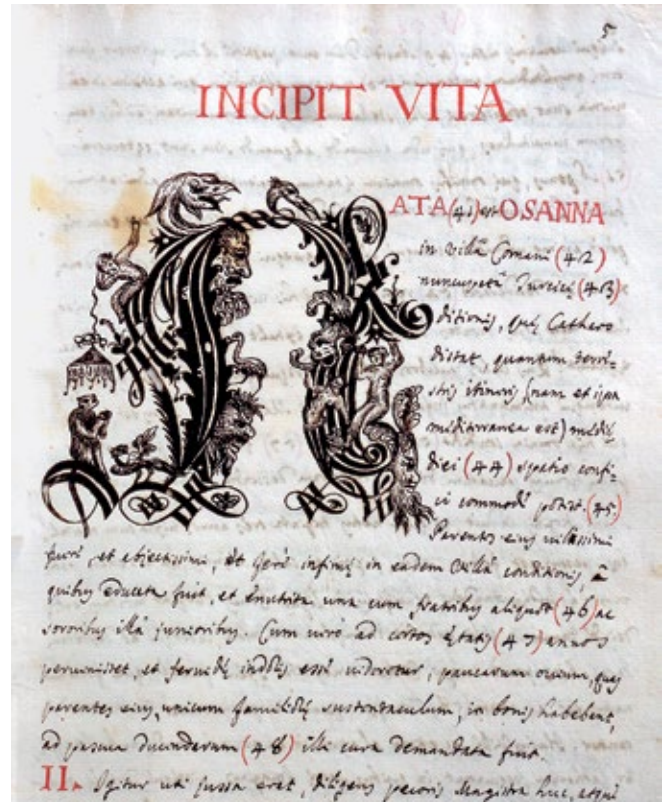 5
INCIPIT VITA
NATA (41) est OSANNA
in Villâ Comani (42)
nuncupatâ (43)
ditionis, quę Catharo
distat, quantum terre-
stris itineris (nam et ipsa
mediterranea est) medię
diei (44) spatio confi-
ci commodè potest. (45)
Parentes eius vilissimi
fuere, et abjectissimi, et ferè infimę in eadem Villâ conditionis, à
quibus educata fuit, et enutrita una cum fratribus aliquot (46) ac
sororibus illâ junioribus. Cum verò ad certos ętatis (47) annos
pervenisset, et fervidę indolis esse videretur, paucarum ovium, quas
parentes eius, unicum familiolę sustentaculum, in bonis habebant,
ad pascua ducendarum (48) illi cura demandata fuit.
II. Igitur uti jussa erat, diligens pecoris Magistra huc,